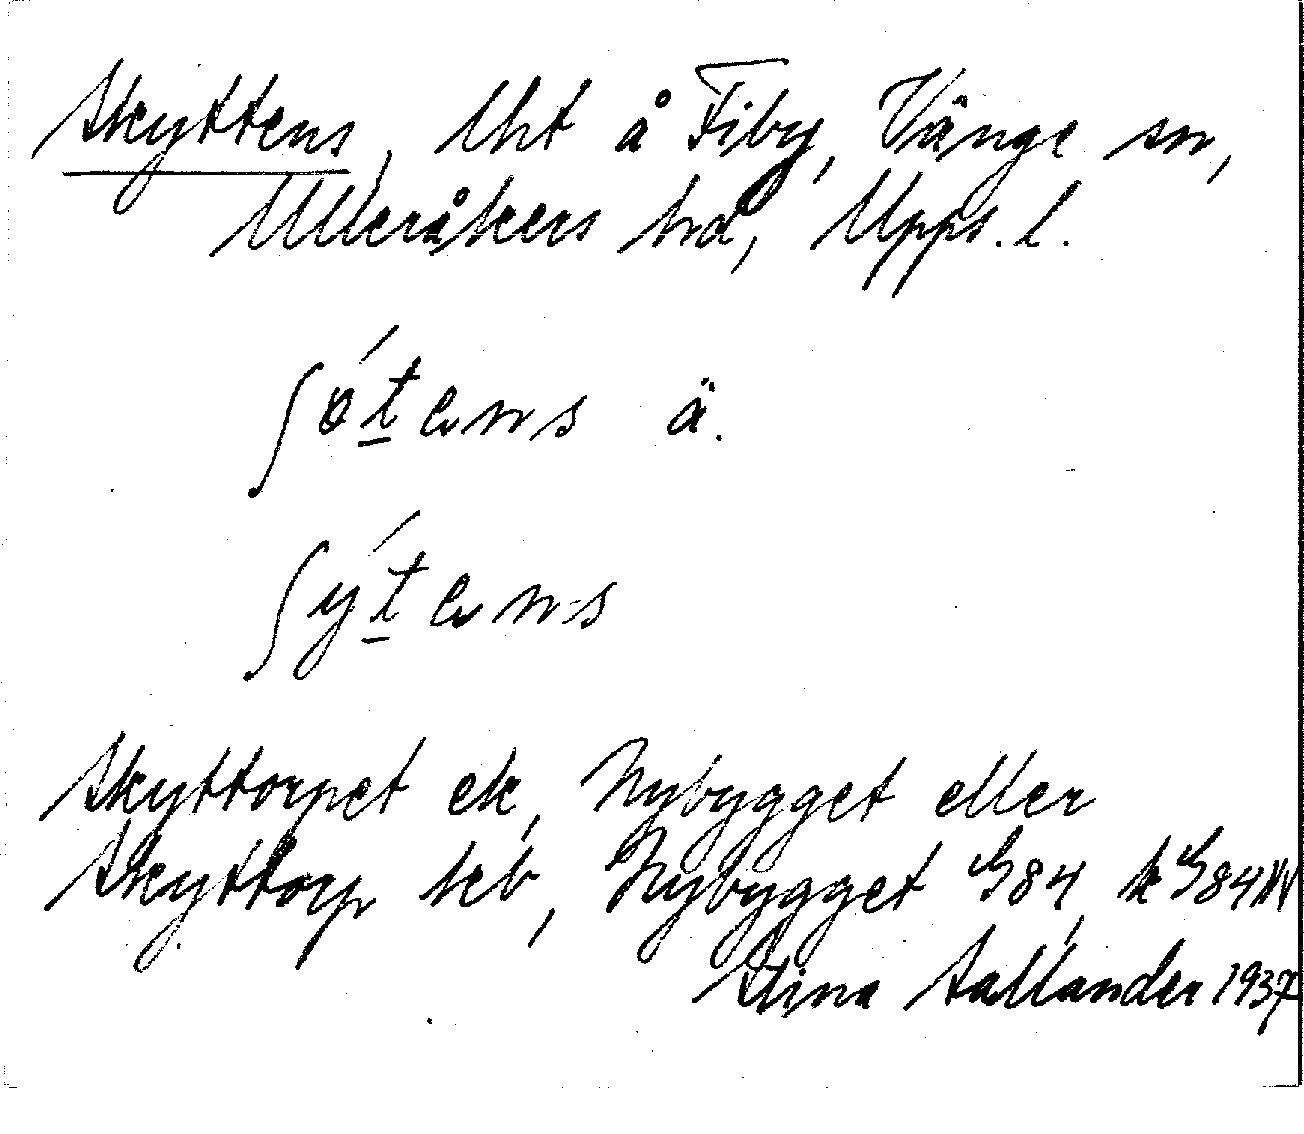 Skyttens, lht å Fiby, Vänge sn,
Ulleråkers hd, Upps. l.
ʃǿt̲ens ä.
ʃýt̲ens
Skyttorpet ek, Nybygget eller
Skyttorp keb, Nybygget G84, k G84NV
Stina Sallander 1937